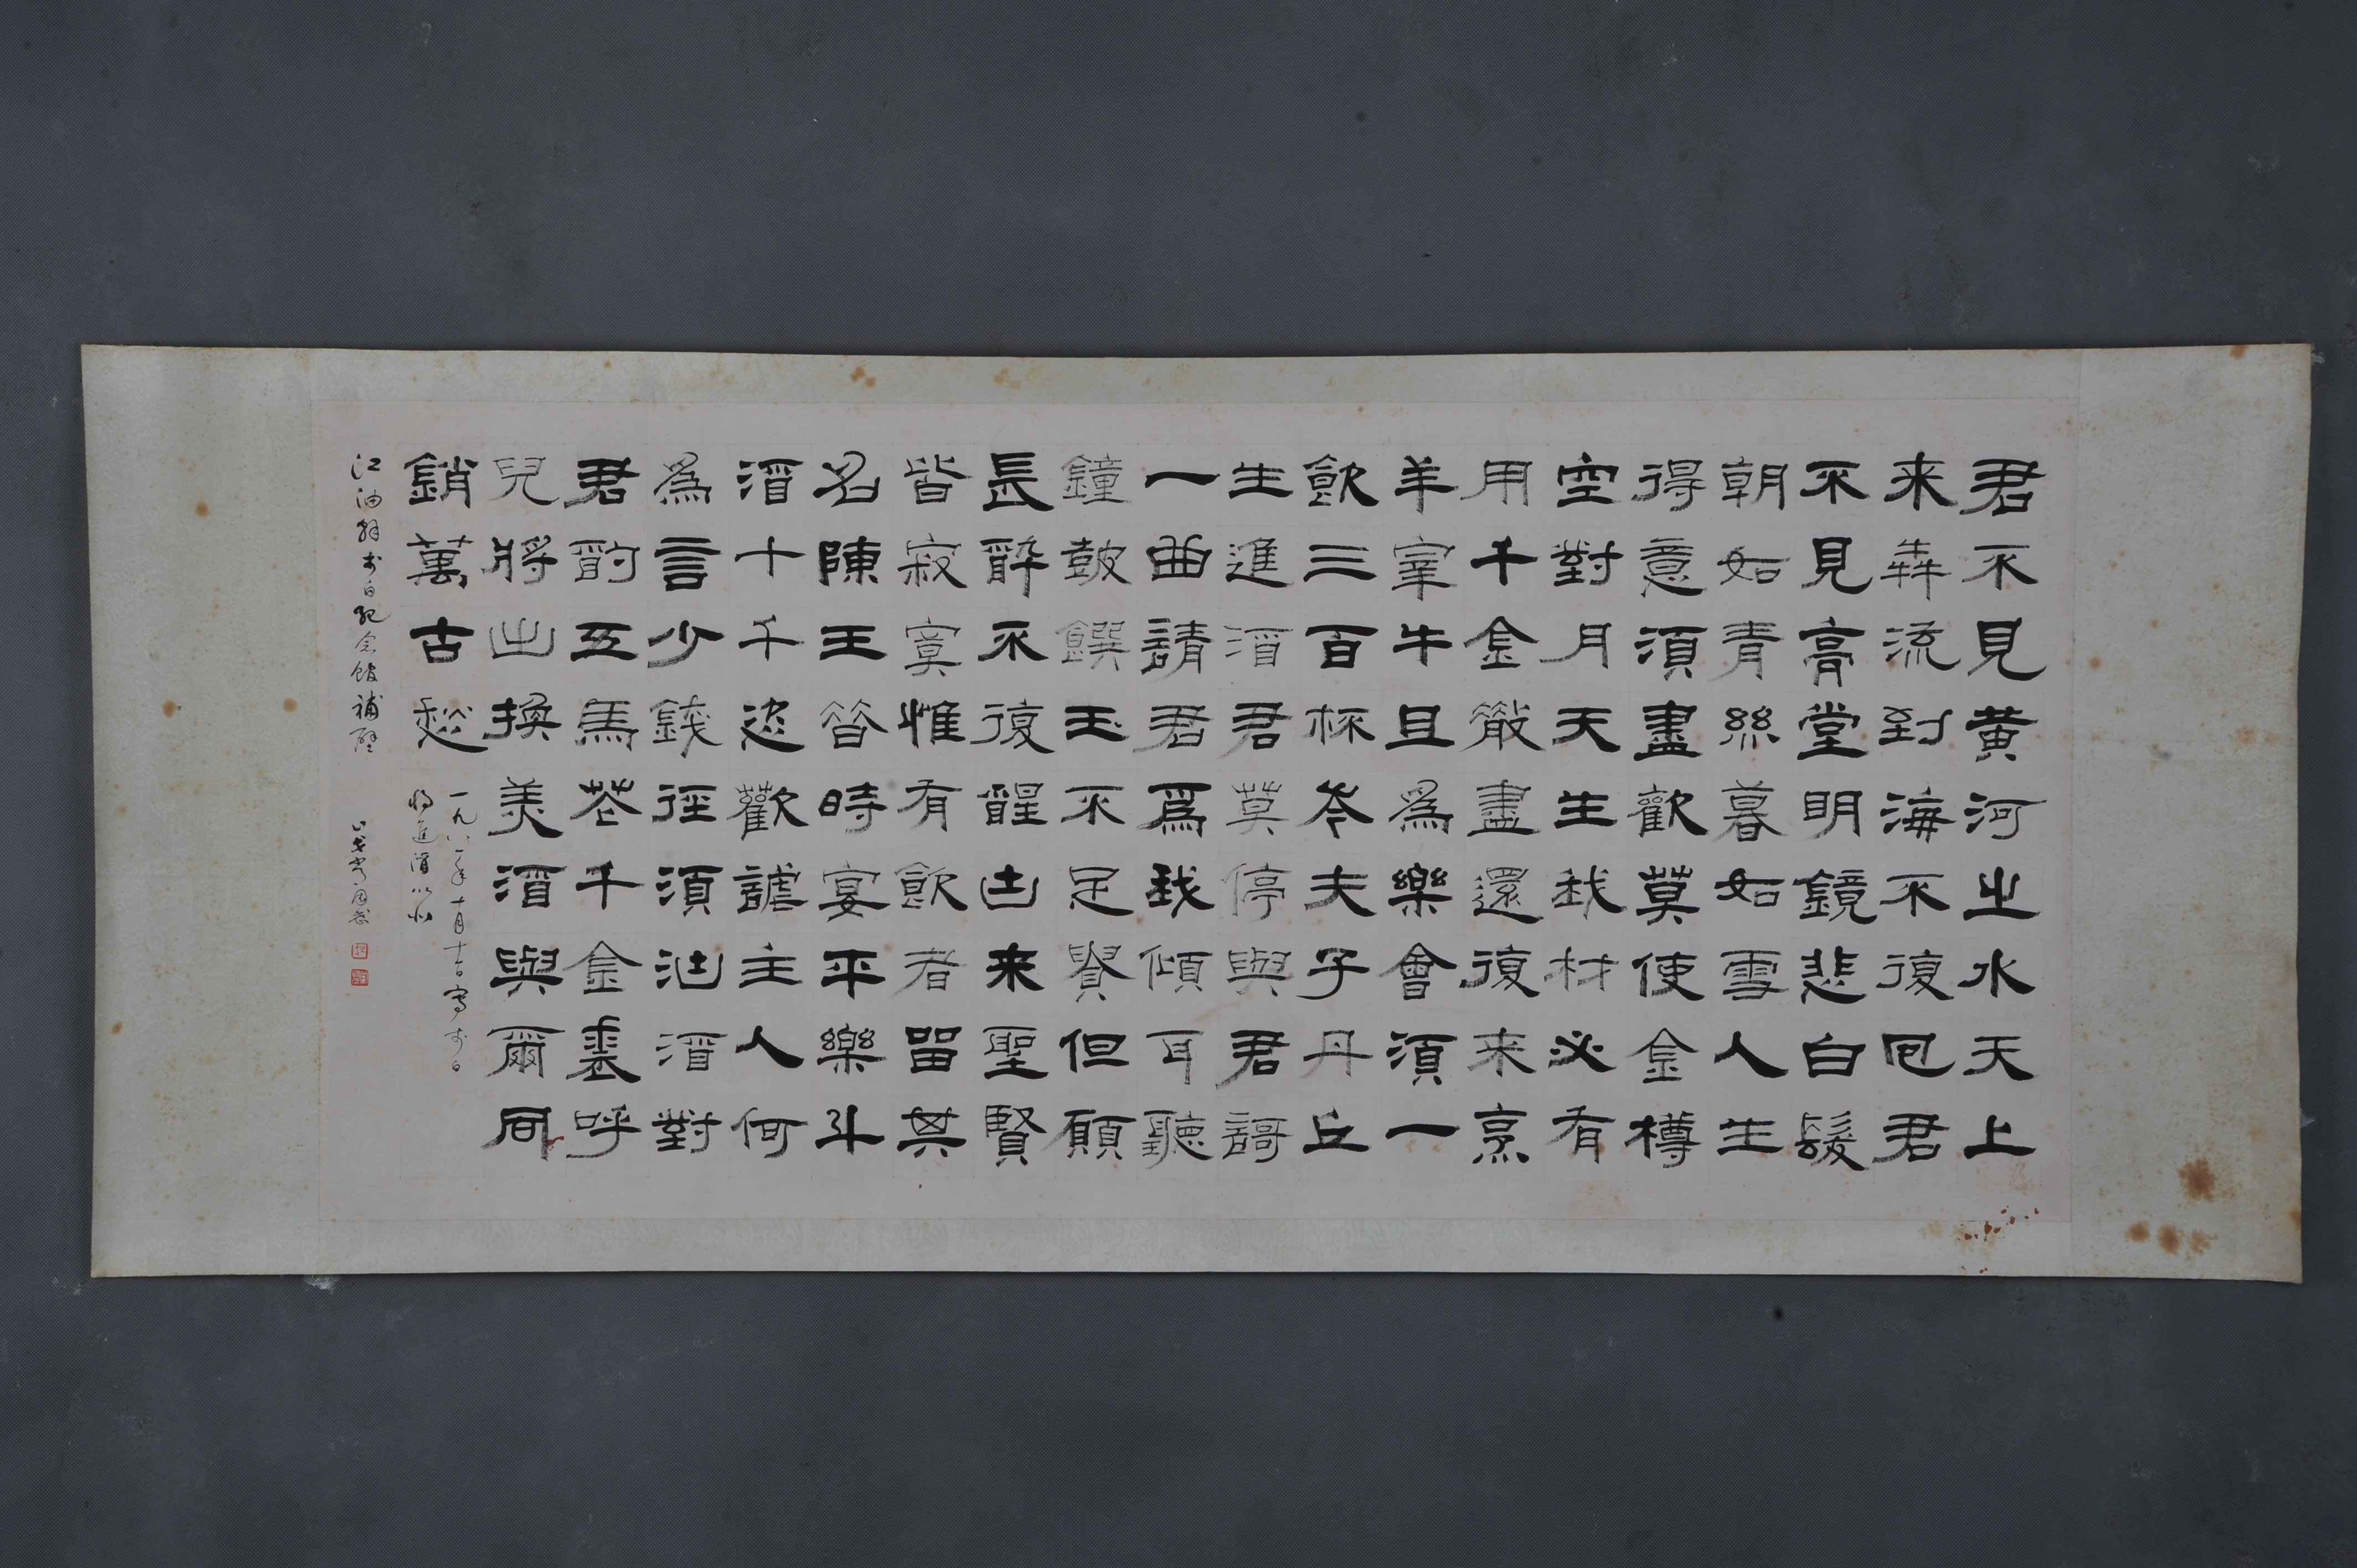 君不見黃河之水天上
来犇流到海不復回君
不見高堂明鏡悲白髮
朝如青絲暮如雪人生
得意須盡歡莫使金樽
空對月天生我材必有
用千金散盡還復来烹
羊宰牛且為樂會須一
飲三百杯岑夫子丹丘
生進酒君莫停與君謌
一曲請君爲我傾耳聽
鐘鼓饌玉不足貴但願
長醉不復醒古来聖賢
皆寂寞惟有飲者留其
名陳王昔時宴平樂斗
酒十千恣歡謔主人何
為言少錢徑須沽酒對
君酌五馬花千金裘呼
兒將出換美酒與爾同
銷萬古愁
一九八一年十月寫李白
將進酒以
江油縣李白紀念館補壁